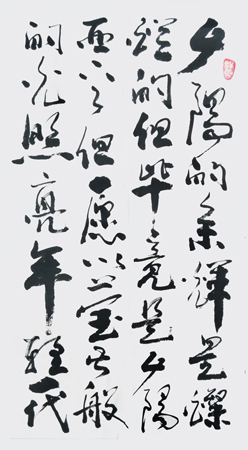 夕陽的余輝是燦
爛的但毕竟是夕陽
西下了但愿以萤般
的光照亮年轻一代